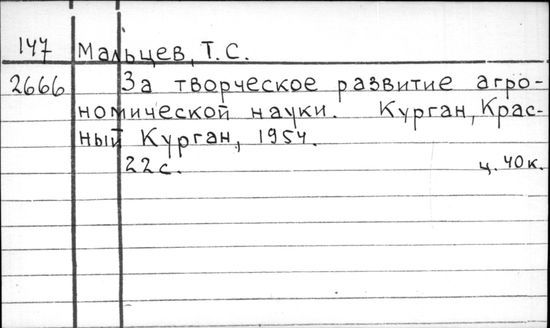 147 Мальцев, Т.С.
2666 За творческое развитие агро-
номической науки. Курган, Крас-
ный Курган, 1954.
22 с. ц. 40 к.